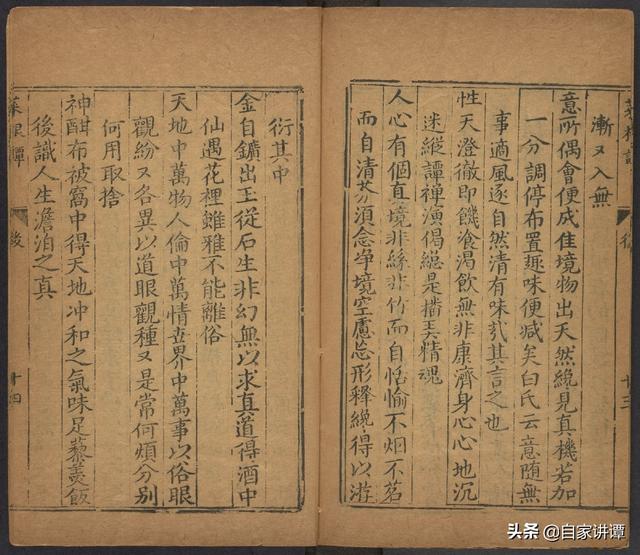 菜根譚
後
十三
漸又入無
意所偶會便成佳境物出天然纔見真機若加
一分調停布置趣味便減矣白氏云意隨無
事適風逐自然清有味㢤其言之也
性天澄徹即饑飡渴飲無非康濟身心心地沉
迷縱譚禪演偈縂是播弄精魂
人心有個真境非絲非竹而自恬愉不烟不茗
而自清芬須念净境空慮忘形釋纔得以游
衍其中
金自鑛出玉從石生非幻無以求真道得酒中
仙遇花裡雖雅不能離俗
天地中萬物人倫中萬情世界中萬事以俗眼
觀紛又各異以道眼觀種又是常何煩分別
何用取捨
神酣布被窩中得天地冲和之氣味足藜羹飯
後識人生澹泊之真
菜根譚
後
十四
头条 @自家讲谭